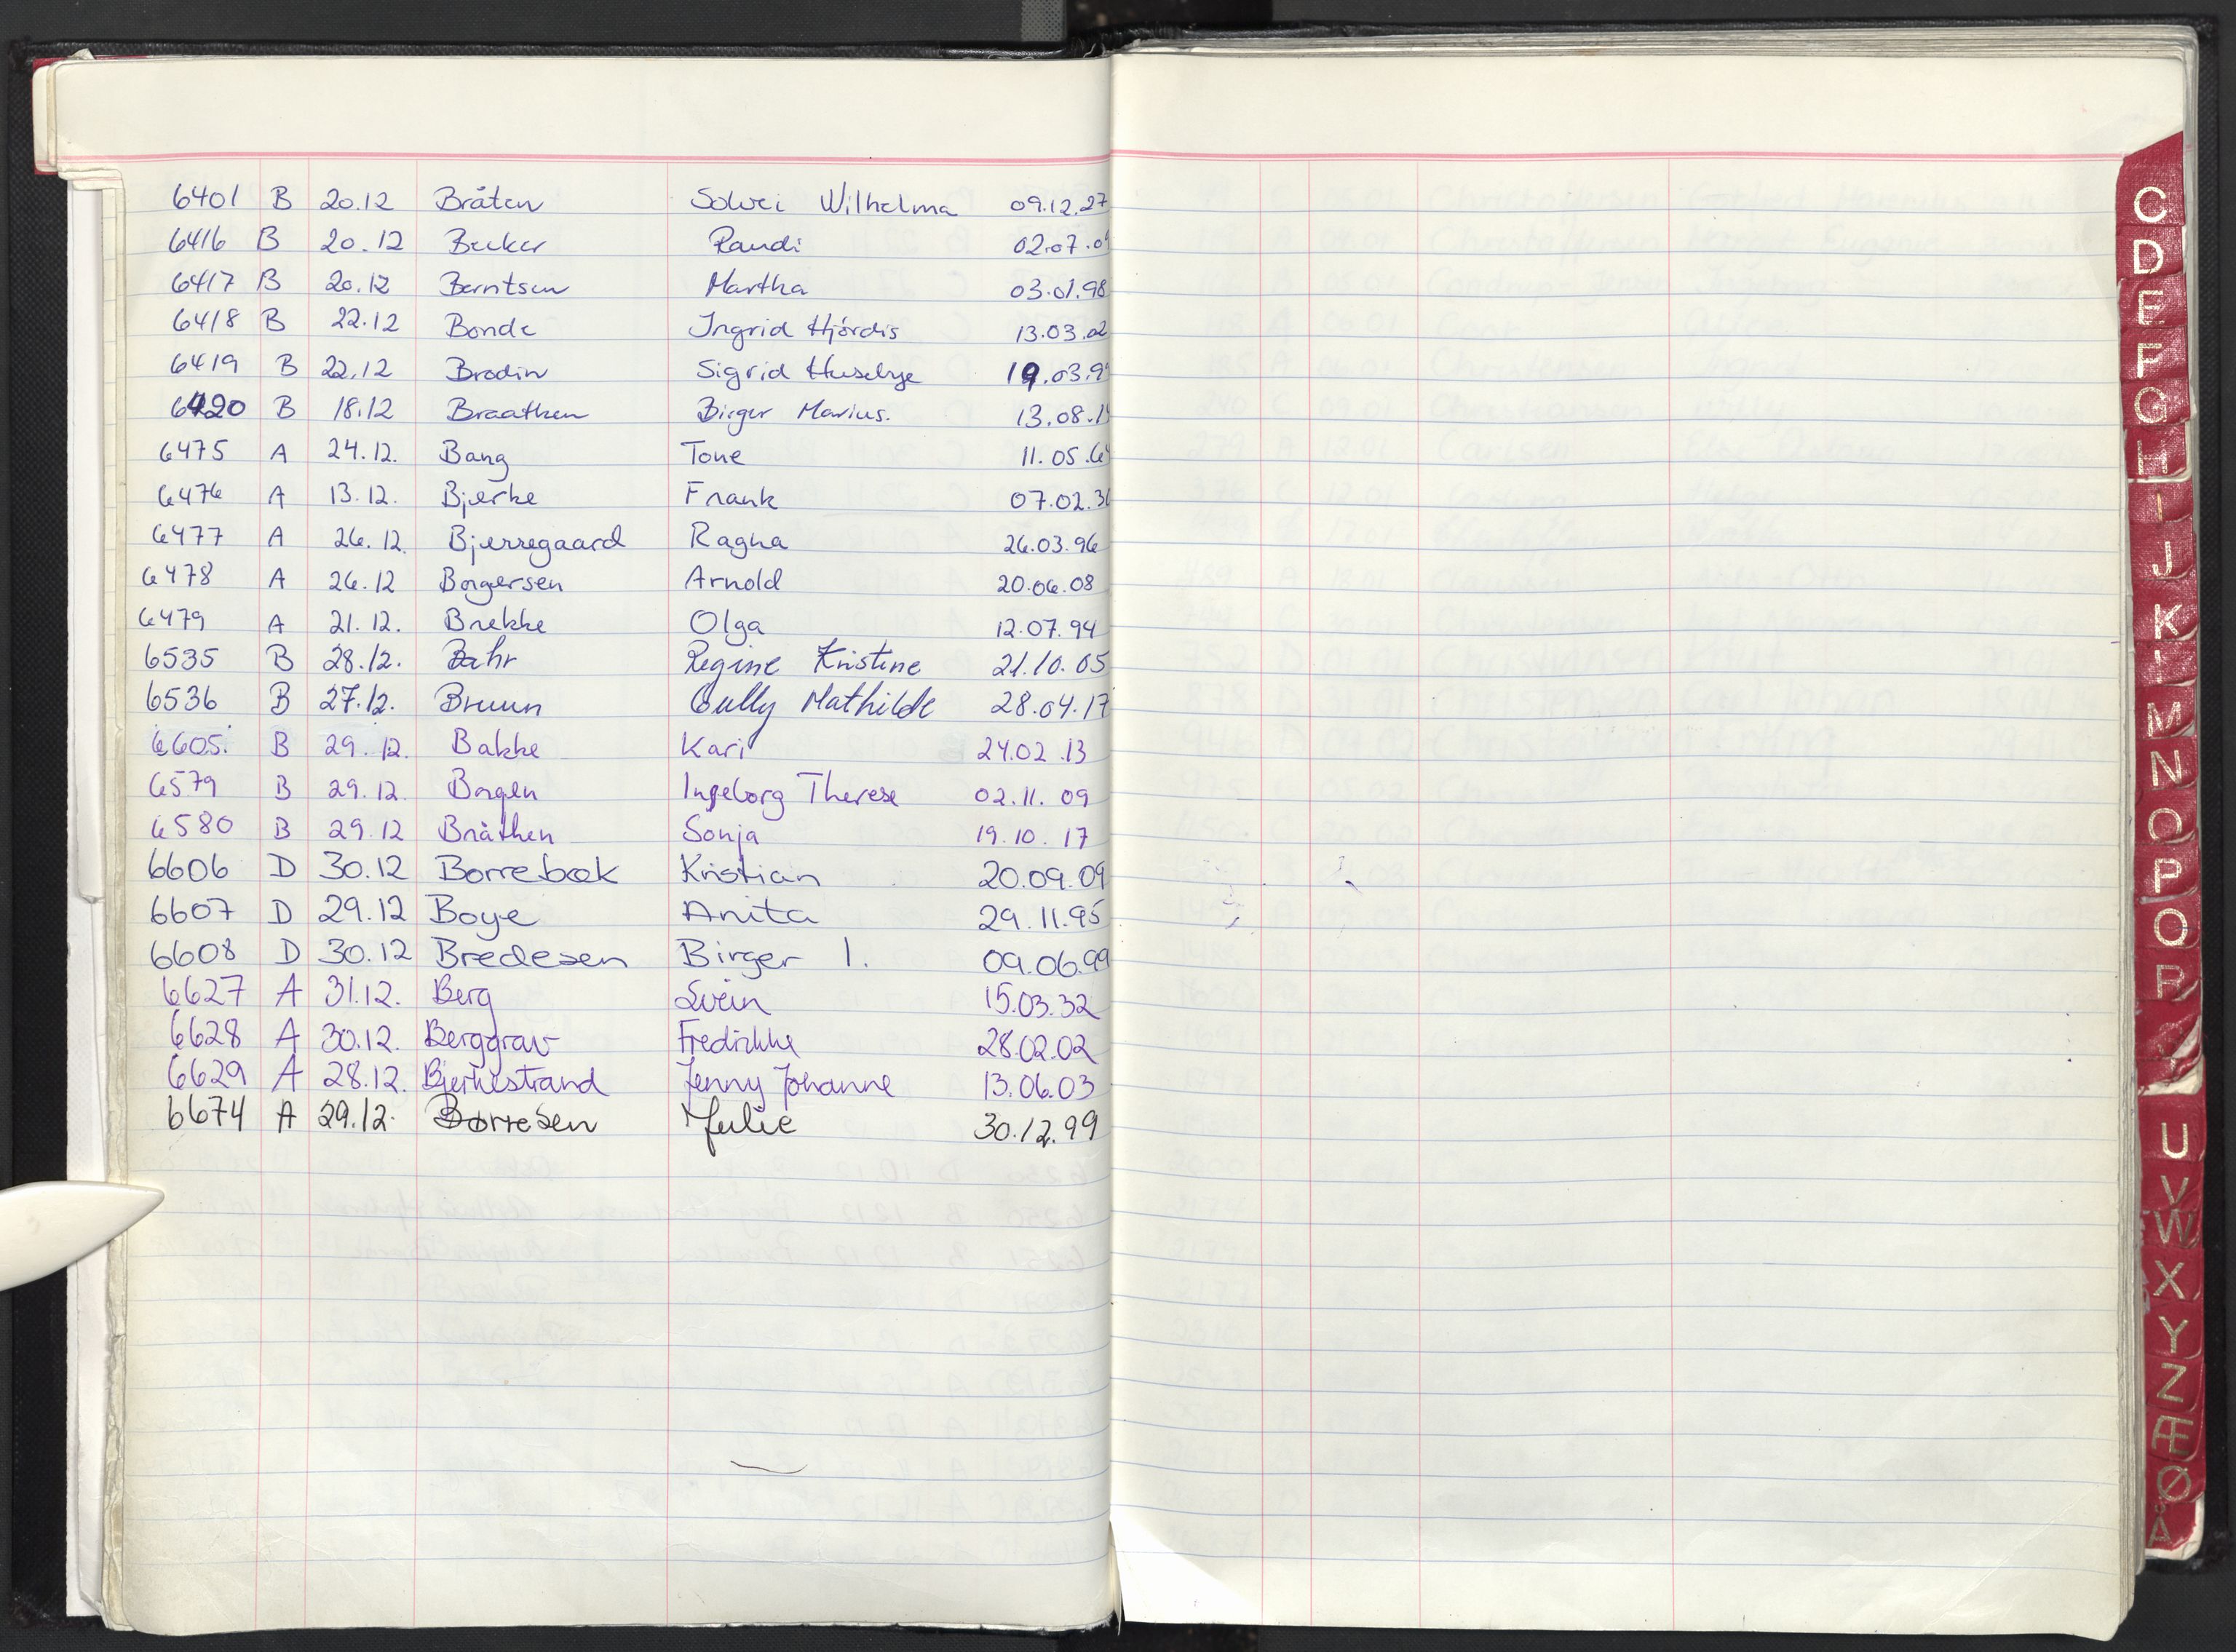 6401 B 20.12 Bråten Solvei Wilhelma 09.12.27
6416 B 20.12 Becker Randi 02.07.0
6417 B 20.12 Berntsen Martha 03.01.98
6418 B 22.12 Bonde Ingrid Hjördis 13.03.02
6419 B 22.12 Brodin Sigrid Husebye 19.03.9
6420 B 18.12 Braathen Birger Marius. 13.08.1
6475 A 24.12. Bang Tone 11.05.64
6476 A 13.12. Bjerke Frank 07.02.3
6477 A 26.12. Bjerregaard Ragna 26.03.96
6478 A 26.12 Borgersen Arnold 20.06.08
6479 A 21.12. Brekke Olga 12.07.94
6535 B 28.12. Bahr Regine Kristine 21.10.05
6536 B 27.12. Bruun Gully Mathilde 28.04.17
6605. B 29.12. Bakke Kari 24.02.13
6579 B 29.12. Bogen Ingeborg Therese 02.11.09
6580 B 29.12 Bråthen Sonja 19.10.17
6606 D 30.12 Borrebæk Kristian 20.09.09
6607 D 29.12 Boye Anita 29.11.95
6608 D 30.12 Bredesen Birger I. 09.06.99
6627 A 31.12. Berg Svein 15.03.32
6628 A 30.12. Berggrav Fredrikke 28.02.02
6629 A 28.12. Bjerkestrand Jenny Johanne 13.06.03
6674 A 29.12. Børresen Julie 30.12.99
C
D
E
F
G
H
I
J
K
L
M
N
O
P
Q
R
U
V
W
X
Y
Z
Æ
Ø
Å